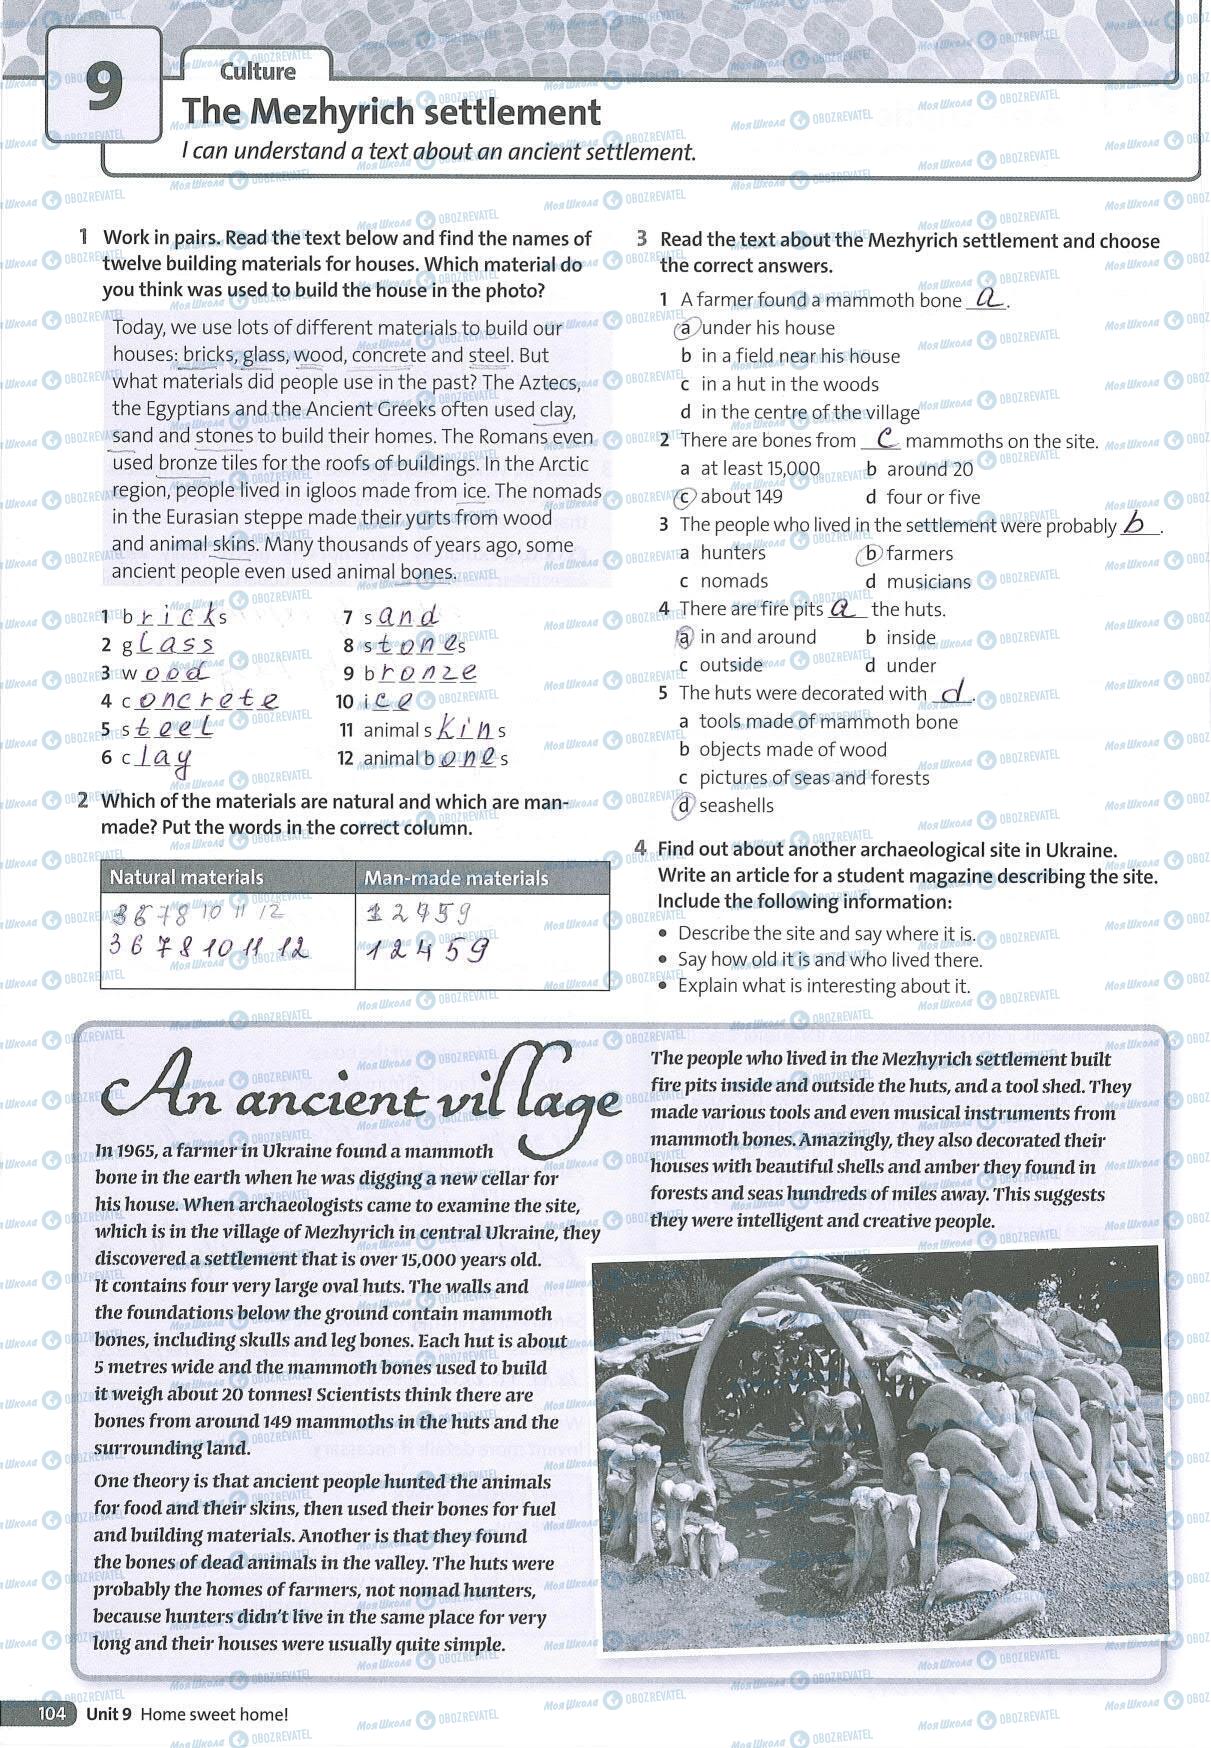 9
Culture
The Mezhyrich settlement
I can understand a text about an ancient settlement.
1 Work in pairs. Read the text below and find the names of
twelve building materials for houses. Which material do
you think was used to build the house in the photo?
Today, we use lots of different materials to build our
houses: bricks, glass, wood, concrete and steel. But
what materials did people use in the past? The Aztecs,
the Egyptians and the Ancient Greeks often used clay,
sand and stones to build their homes. The Romans even
used bronze tiles for the roofs of buildings. In the Arctic
region, people lived in igloos made from ice. The nomads
in the Eurasian steppe made their yurts from wood
and animal skins. Many thousands of years ago, some
ancient people even used animal bones.
1 bricks
2 glass
3 wood
4 concrete
5 steel
6 clay
7 sand
8 stones
9 bronze
10 ice
11 animal skins
12 animal bones
2 Which of the materials are natural and which are man-
made? Put the words in the correct column.
Natural materials Man-made materials
3 6 7 8 10 11 12 1 2 4 5 9
3 6 7 8 10 11 12 1 2 4 5 9
3 Read the text about the Mezhyrich settlement and choose
the correct answers.
1 A farmer found a mammoth bone a.
a under his house
b in a field near his house
c in a hut in the woods
d in the centre of the village
2 There are bones from c mammoths on the site.
a at least 15,000 b around 20
c about 149 d four or five
3 The people who lived in the settlement were probably b.
a hunters b farmers
c nomads d musicians
4 There are fire pits a the huts.
a in and around b inside
c outside d under
5 The huts were decorated with d.
a tools made of mammoth bone
b objects made of wood
c pictures of seas and forests
d seashells
4 Find out about another archaeological site in Ukraine.
Write an article for a student magazine describing the site.
Include the following information:
• Describe the site and say where it is.
• Say how old it is and who lived there.
• Explain what is interesting about it.
An ancient village
In 1965, a farmer in Ukraine found a mammoth
bone in the earth when he was digging a new cellar for
his house. When archaeologists came to examine the site,
which is in the village of Mezhyrich in central Ukraine, they
discovered a settlement that is over 15,000 years old.
It contains four very large oval huts. The walls and
the foundations below the ground contain mammoth
bones, including skulls and leg bones. Each hut is about
5 metres wide and the mammoth bones used to build
it weigh about 20 tonnes! Scientists think there are
bones from around 149 mammoths in the huts and the
surrounding land.
One theory is that ancient people hunted the animals
for food and their skins, then used their bones for fuel
and building materials. Another is that they found
the bones of dead animals in the valley. The huts were
probably the homes of farmers, not nomad hunters,
because hunters didn't live in the same place for very
long and their houses were usually quite simple.
The people who lived in the Mezhyrich settlement built
fire pits inside and outside the huts, and a tool shed. They
made various tools and even musical instruments from
mammoth bones. Amazingly, they also decorated their
houses with beautiful shells and amber they found in
forests and seas hundreds of miles away. This suggests
they were intelligent and creative people.
104 Unit 9 Home sweet home!
Моя Школа OBOZREVATEL